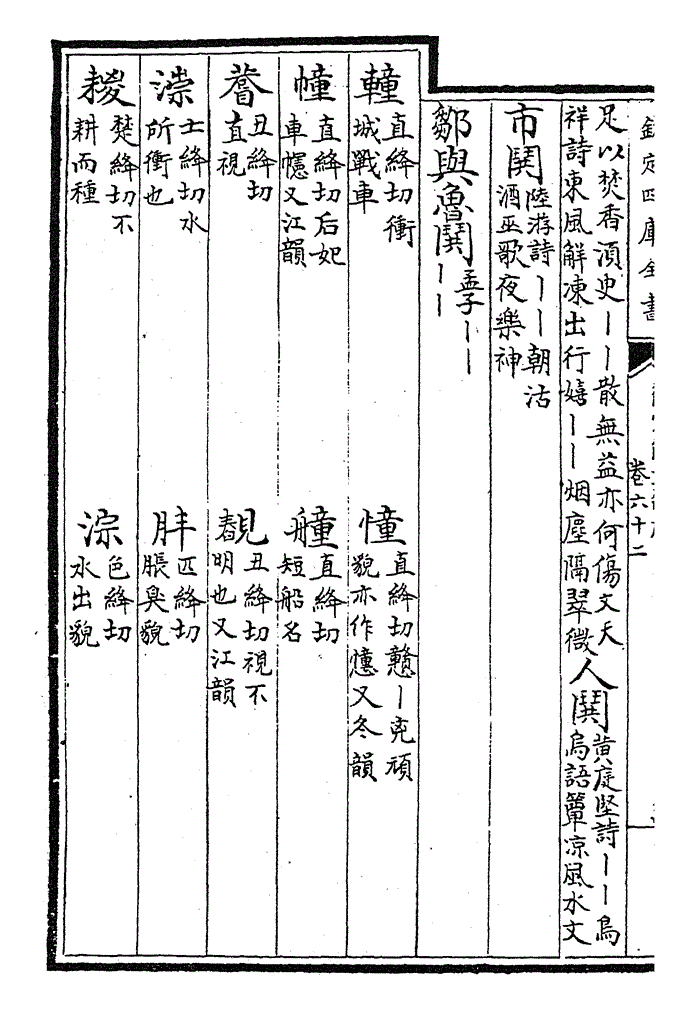 欽定四庫全書
卷六十二
足以焚香湏史丨丨散無益亦何傷文天
祥詩東風解凍出行嬉丨丨烟塵隔翠微
人鬨 黄庭堅詩丨丨烏
烏語簟凉風水文
市鬨 陸游詩丨丨朝沽
酒巫歌夜樂神
鄒與魯鬨 孟子丨丨
丨丨
䡴 直絳切衝
城戰車
憧 直絳切戇丨兇頑
貌亦作 又冬韻
幢 直絳切后妃
車幰又江韻
艟 直絳切
短船名
丑絳切
直視
䚎 丑絳切視不
明也又江韻
漴 士絳切水
所衝也
肨 匹絳切
脹臭貌
䎫 楚絳切不
耕而種
淙 色絳切
水出貌